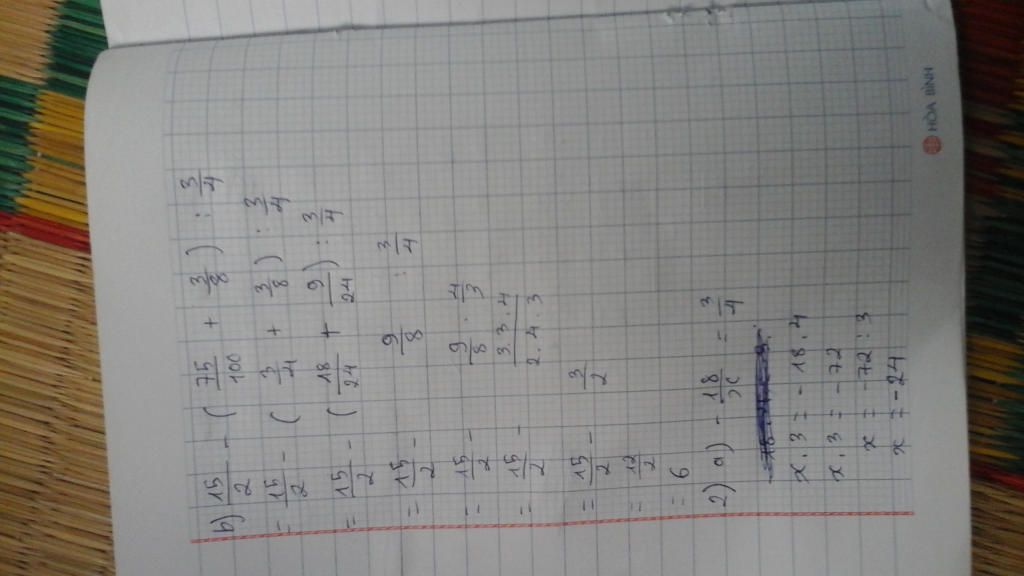 b) 15/2 - ( 75/100 + 3/8 ) : 3/4
= 15/2 - ( 3/4 + 3/8 ) : 3/4
= 15/2 - ( 18/24 + 9/24 ) : 3/4
= 15/2 - 9/8 : 3/4
= 15/2 - 9/8 . 4/3
= 15/2 - 3.3.4/2.4.3
= 15/2 - 3/2
= 12/2
= 6
2) a) -18/x = 3/4
x.3 = -18.4
x.3 = -72
x = -72:3
x = -24
HÒA BÌNH